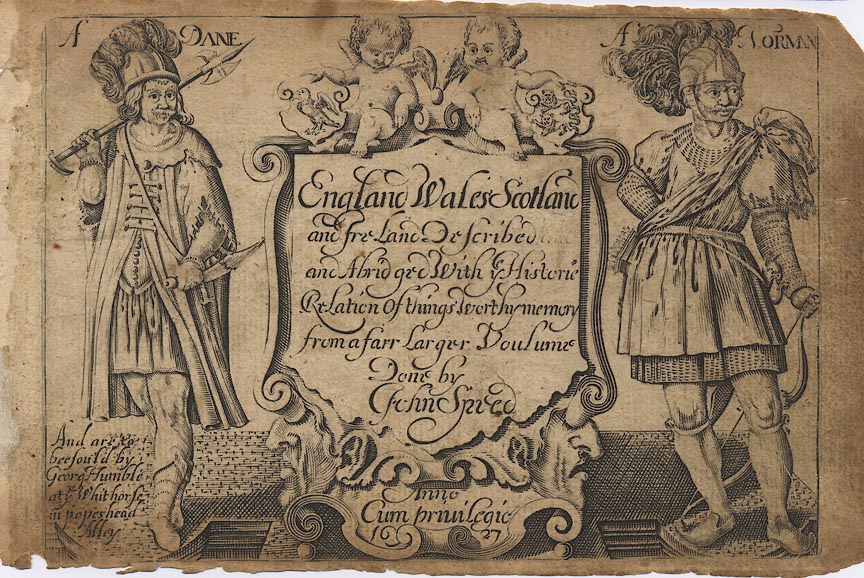 A DANE
A NORMAN
England Wales Scotland
and Ireland Described
and Abridged With ye Historie
Relation of things worthy memory
from a farr Larger Voulume
Done by
John Speed
And are to
bee sould by
Georg Humble
at ye Whithorse
in popes head
Alley
Anno
Cum privilegio
1627